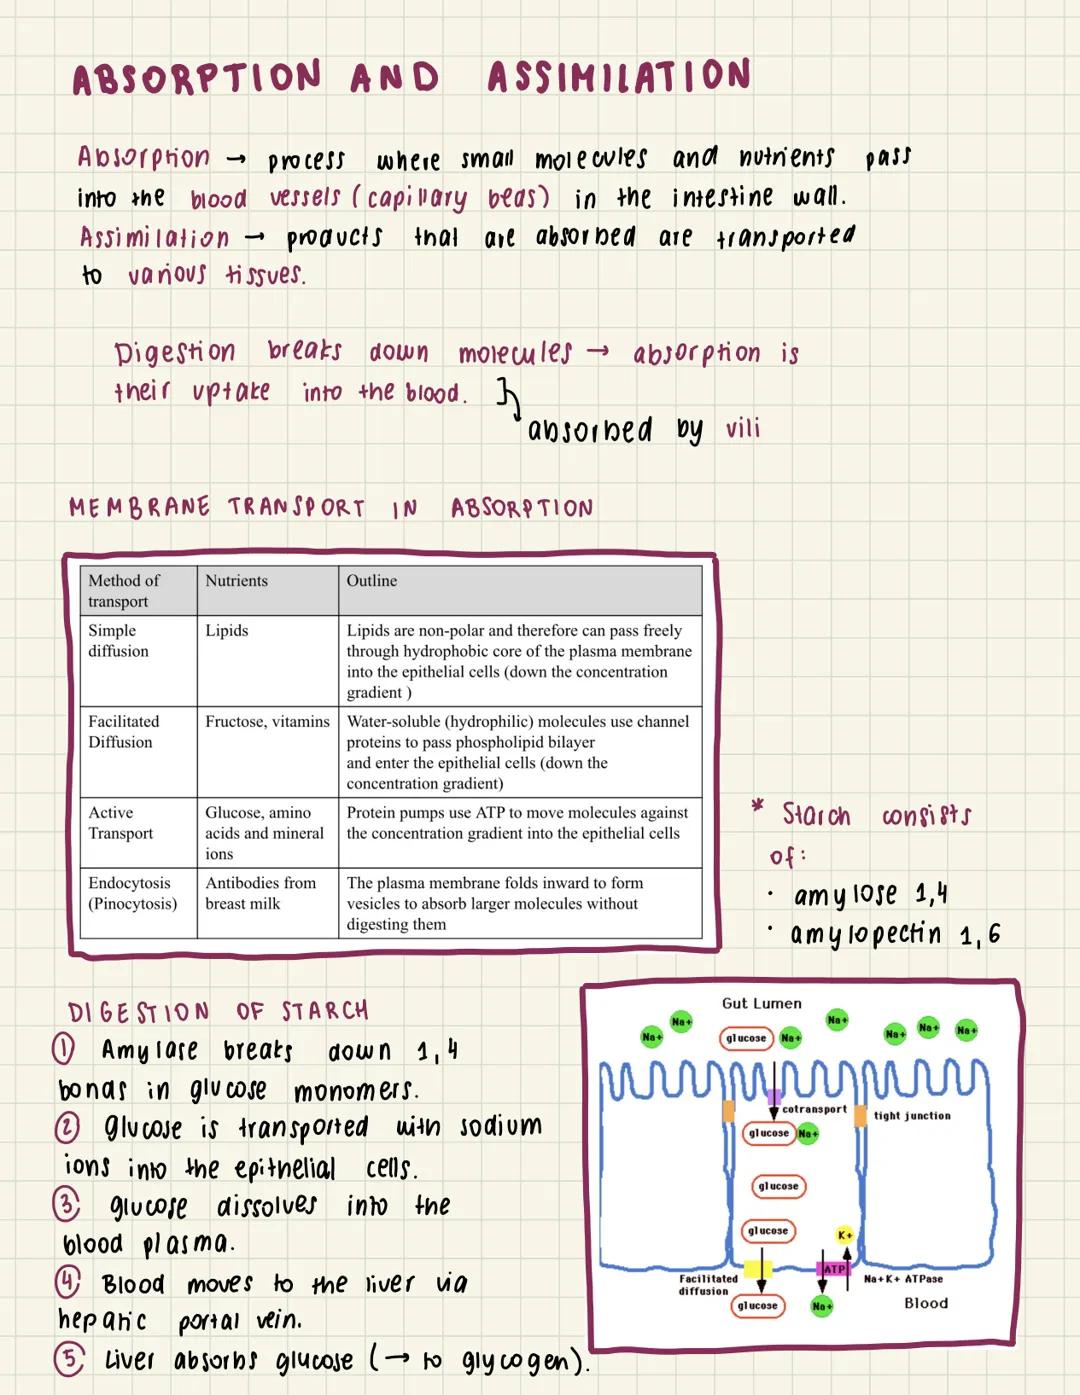 ABSORPTION AND ASSIMILATION
Absorption → process where small molecules and nutrients pass
into the blood vessels (capillary beds) in the intestine wall.
Assimilation → products that are absorbed are transported
to various tissues.
Digestion breaks down molecules → absorption is
their uptake into the blood.
absorbed by vili
MEMBRANE TRANSPORT IN ABSORPTION
Method of transport Nutrients Outline
Simple diffusion
Lipids
Lipids are non-polar and therefore can pass freely
through hydrophobic core of the plasma membrane
into the epithelial cells (down the concentration
gradient )
Facilitated
Diffusion
Fructose, vitamins
Water-soluble (hydrophilic) molecules use channel
proteins to pass phospholipid bilayer
and enter the epithelial cells (down the
concentration gradient)
Active
Transport
Glucose, amino
acids and mineral
ions
Protein pumps use ATP to move molecules against
the concentration gradient into the epithelial cells
Endocytosis
(Pinocytosis)
Antibodies from
breast milk
The plasma membrane folds inward to form
vesicles to absorb larger molecules without
digesting them
* Starch consists
of:
· amylose 1,4
· amylopectin 1,6
DIGESTION OF STARCH
① Amylase breaks down 1,4
bonds in glucose monomers.
② glucose is transported with sodium
ions into the epithelial cells.
③ glucose dissolves into the
blood plasma.
④ Blood moves to the liver via
hepatic portal vein.
⑤ Liver absorbs glucose (→ to glycogen).
Gut Lumen
Na+
Na+
glucose
Na+
Na+
Na+
Na+
Na+
cotransport
tight junction
glucose
Na+
glucose
glucose
K+
ATP
Facilitated
diffusion
Na+K+ ATPase
glucose
Na+
Blood